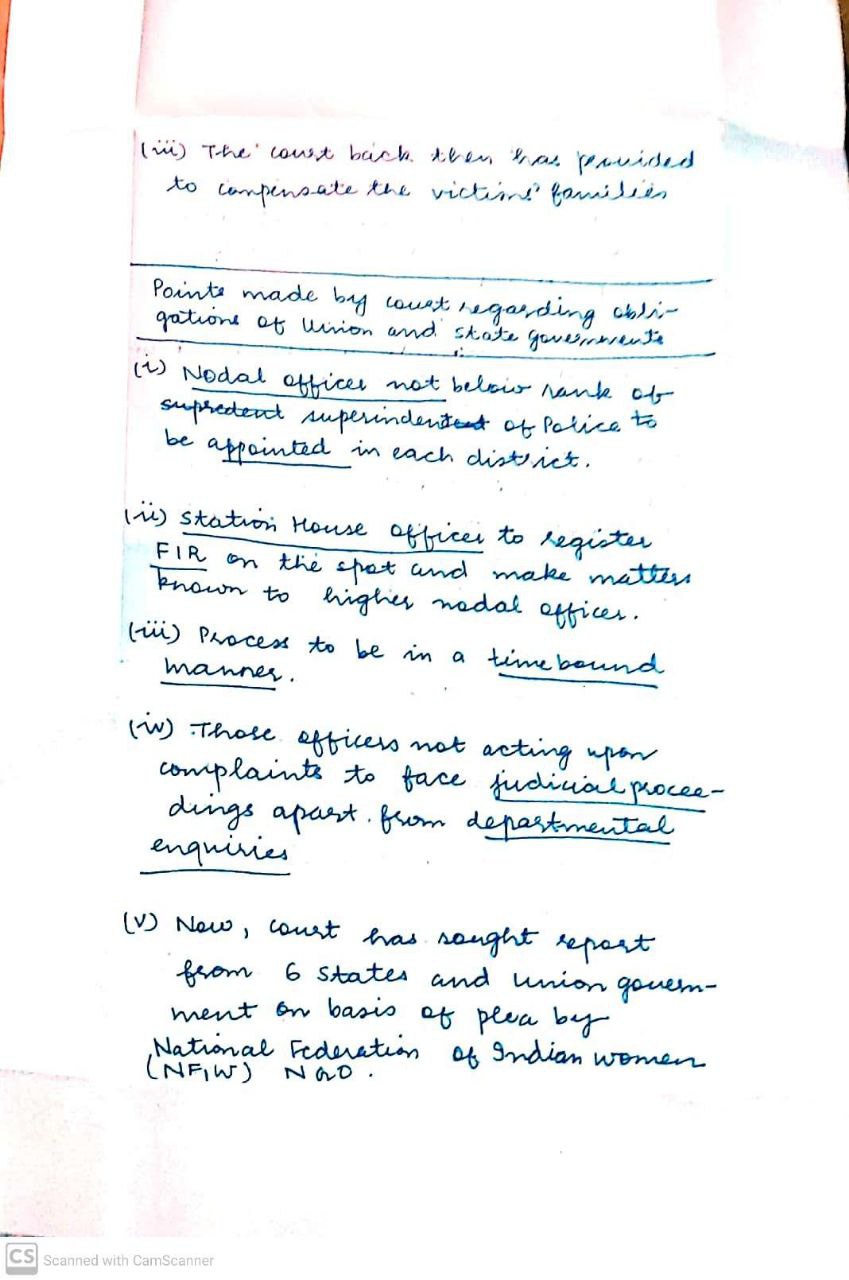 (iii) The court back then has provided
to compensate the victims' families
Points made by court regarding obli-
gations of Union and state governments
(i) Nodal officer not below rank of
supredent superindentent of Police to
be appointed in each district.
(ii) Station House officer to register
FIR on the spot and make matters
known to higher nodal officer.
(iii) Process to be in a time bound
manner.
(iv) Those officers not acting upon
complaints to face judicial procee-
dings apart from departmental
enquiries
(v) Now, court has sought report
from 6 states and union govern-
ment on basis of plea by
National Federation of Indian women
(NFIW) NGO.
CS Scanned with CamScanner